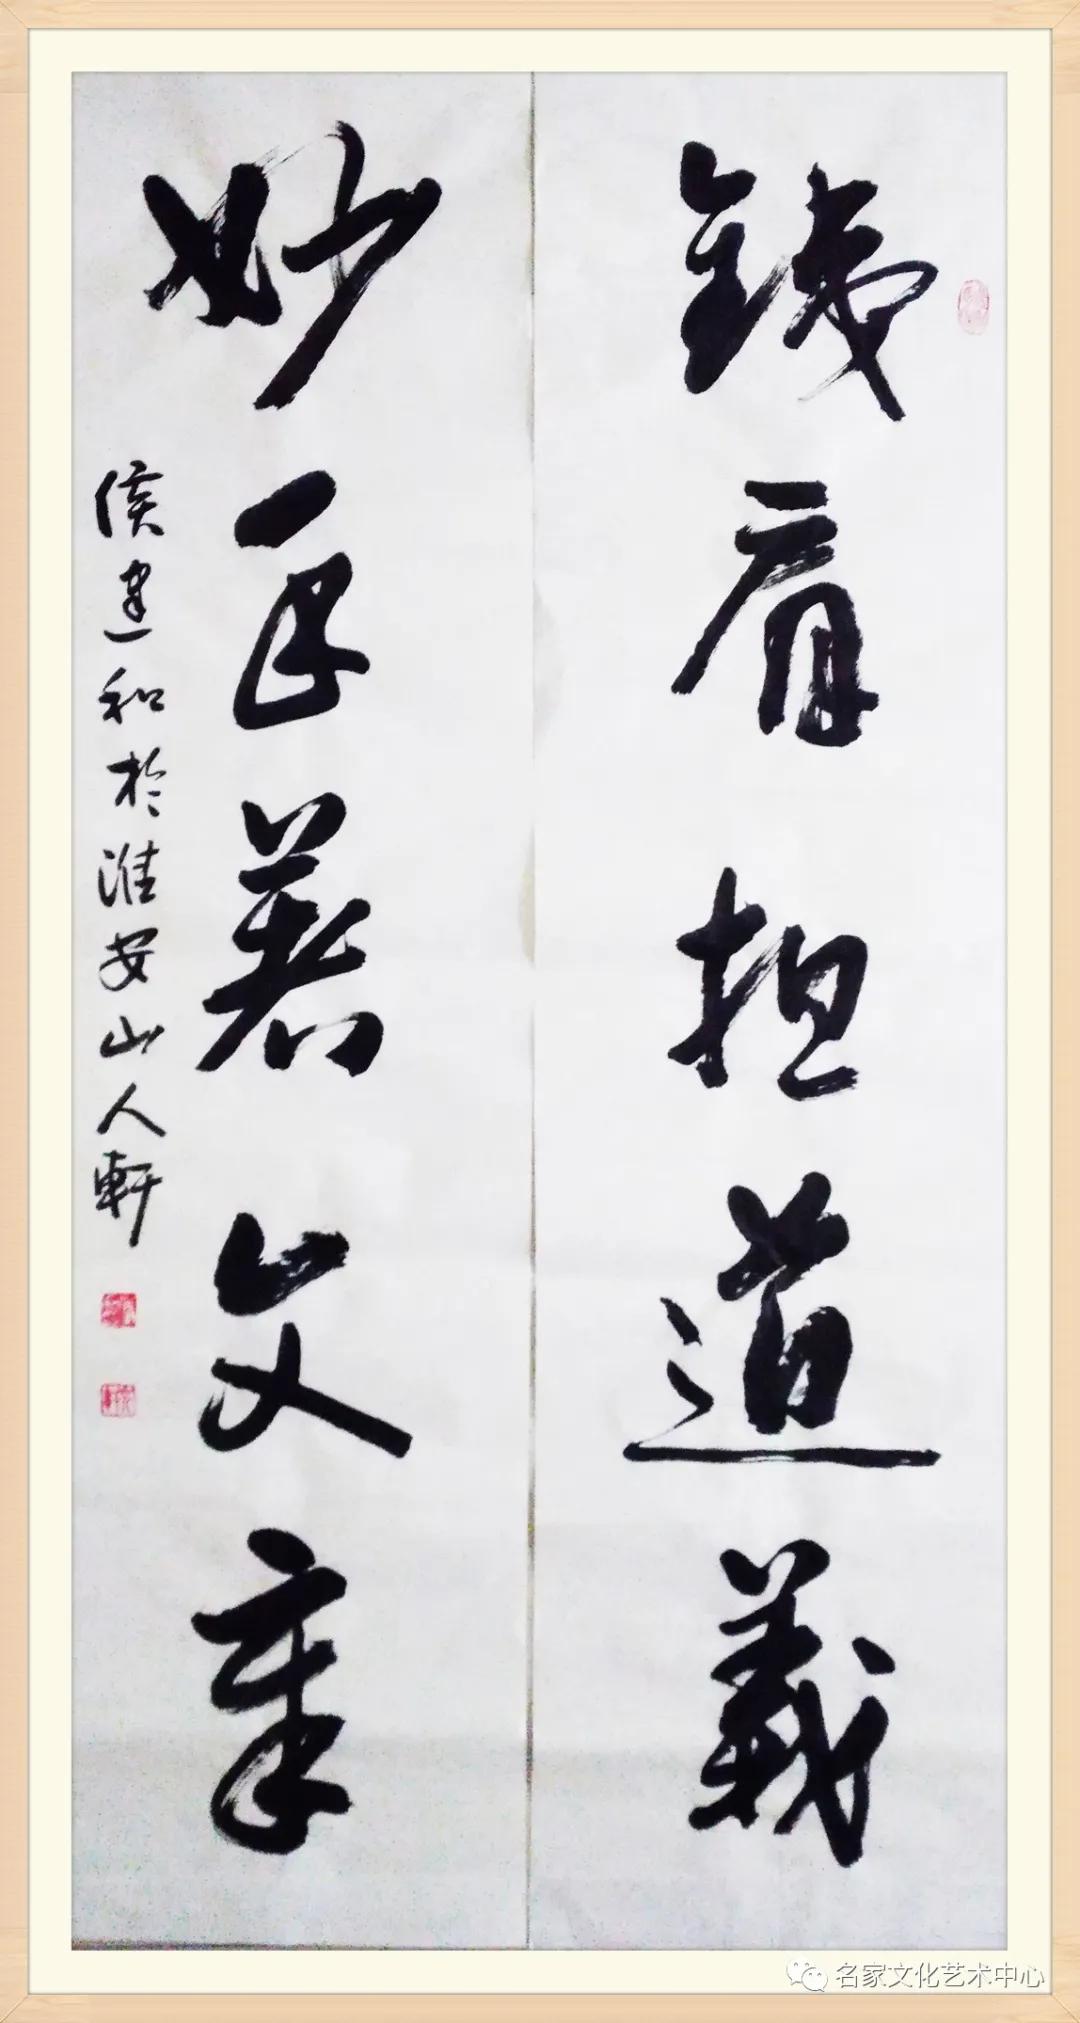 銕肩担道義
妙手著文章
侯建和於淮安山人軒
名家文化艺术中心